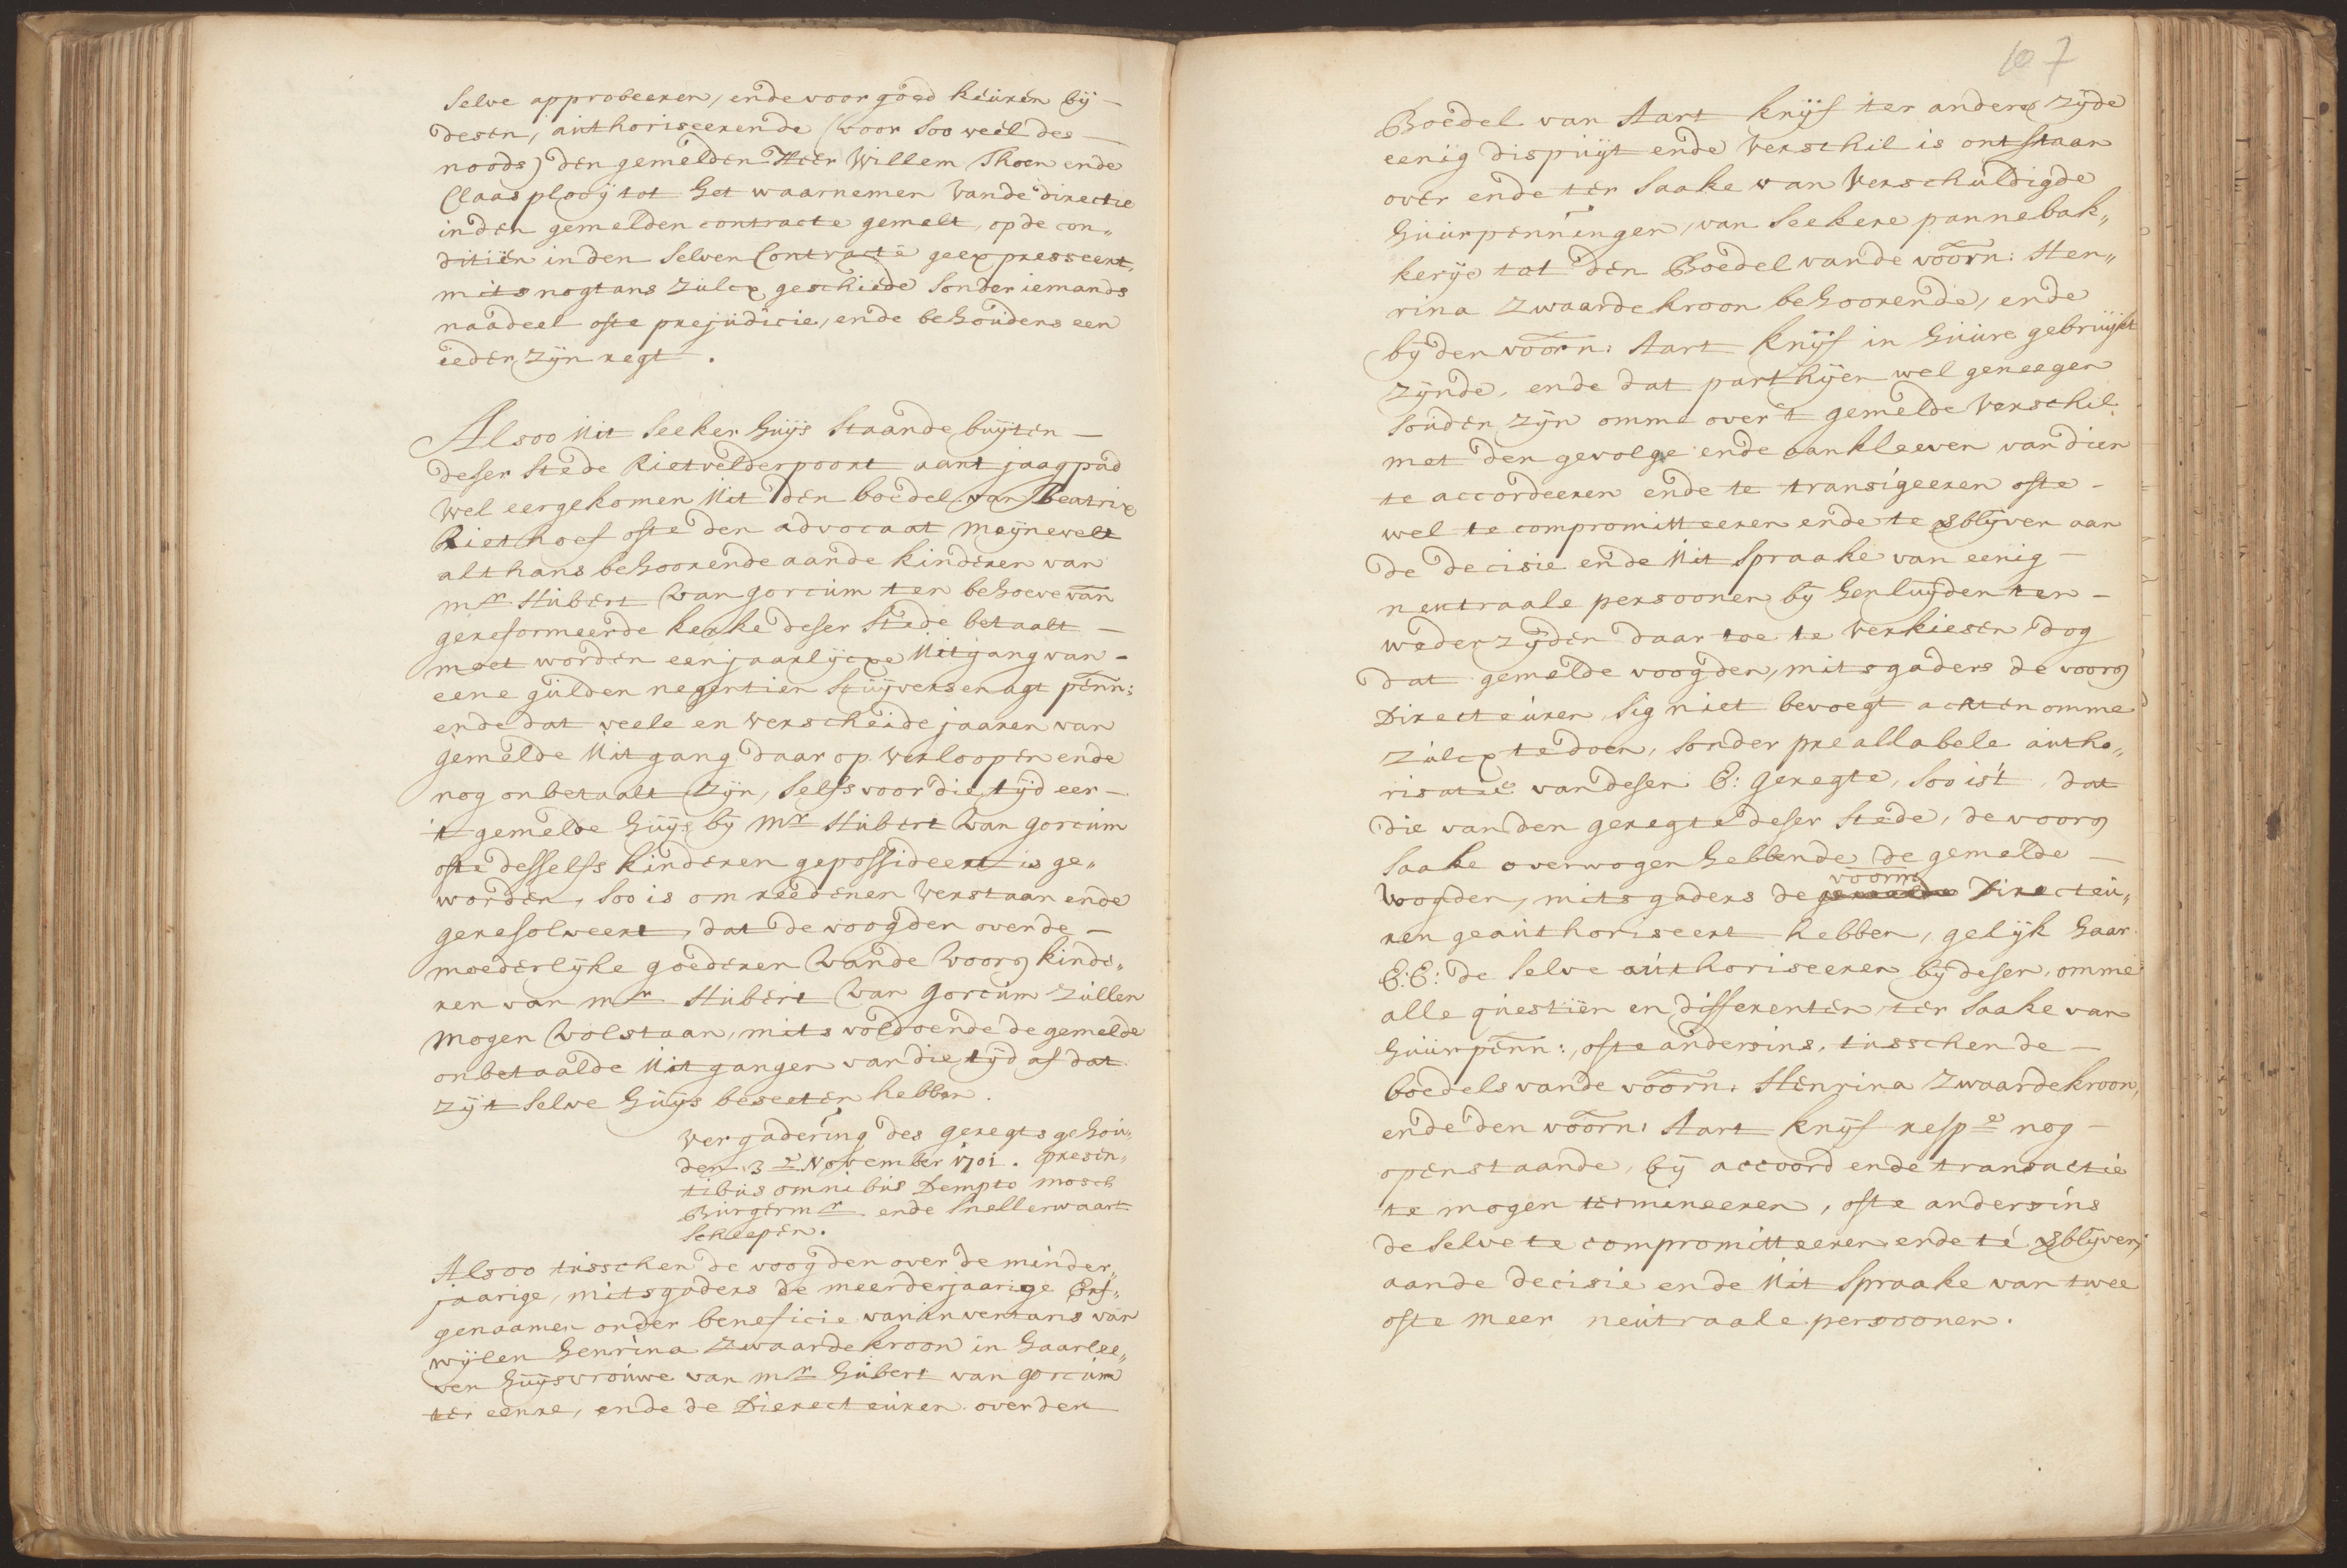 selve approbeeren, ende voor goed keuren bij
desen, authoriseerende (voor soo veel des
noods) den gemelden Heer Willem Thoen ende
Claas plooij tot het waarnemen vande directie
inden gemelden contracte gemelt, opde con„
ditiën inden selven Contracte geexpresseert,
mits nogtans zulcx geschiede sonder iemands
naadeel ofte prejudicie, ende behoudens een
ieder zijn regt.
Alsoo uit seeker huijs staande buijten
deser stede Rietvelderpoort aant jaagpad
wel eer gekomen uit den boedel van Beatrix
Riethoef ofte den advocaat meijnewelt
althans behoorende aande kinderen van
mr. Hubert van gorcum ten behoeve van
gereformeerde kerke deser stede betaalt
moet worden een jaarlijcxe uitgang van
eene gulden negentien stuijvers en agt penn:
ende dat veele en verscheide jaaren van
gemelde uitgang daar op verloopen ende
nog onbetaalt zijn, selfs voor die tijd eer
't gemelde huijs bij mr. Hubert van gorcum
ofte desselfs kinderen gepossideert is ge„
worden, soo is om reedenen verstaan ende
geresolveert, dat de voogden over de
moederlijke goederen vande voors kinde„
ren van mr. Hubert van gorcum zullen
mogen volstaan, mits voldoende de gemelde
onbetaalde uitgangen van die tijd af dat
zij 't selve huijs beseeten hebben.
vergadering des geregts gehou„
den 3e. November 1701. presen„
tibus omnibus Dempto mosch
Burgermr. ende Snellerwaart
Scheepen.
Alsoo tusschen de voogden over de minder„
jaarige, mitsgaders de meerderjaarige Erf„
genaamen onder beneficie van inventaris van
wijlen henrina zwaardekroon in haar lee„
ven huijsvrouwe van mr. hubert van gorcum
ter eenre, ende de Dierecteuren over den
107
Boedel van Aart knijf ter andere zijde
eenig dispuijt ende verschil is ontstaan
over ende ter saake van verschuldigde
huurpenningen, van seekere pannebak„
kerije tot den Boedel vande voorn: Hen„
rina zwaardekroon behoorende, ende
bij den voorn: Aart knijf in huure gebruijkt
zijnde, ende dat parthijen wel geneegen
souden zijn omme over 't gemelde verschil
met den gevolge ende aankleeven van dien
te accordeeren ende te transigeeren ofte
wel te compromitteeren ende te verblijven aan
de decisie ende uitspraake van eenig
neutraale persoonen bij henluijden ten
wederzijden daar toe te verkiesen dog
dat gemelde voogden, mitsgaders de voors
Directeuren sig niet bevoegt achten omme
zulcx te doen, sonder preallabele autho„
risatie van desen E: geregte, soo is't dat
die van den geregte deser stede, de voors
saake overwogen hebbende de gemelde
voorn:
voogden, mitsgaders de gemelde Directeu„
ren geauthoriseert hebben, gelijk haar
E:E: de selve authoriseeren bij desen, omme
alle questiën en differenten ter saake van
huurpenn:, ofte andersins, tusschen de
boedels vande voorn: Henrina zwaardekroon,
ende den voorn: Aart knijf respe. nog
openstaande, bij accoord ende transactie
te mogen termineeren, ofte andersins
de selve te compromitteeren ende te verblijven
aande decisie ende uitspraake van twee
ofte meer neutraale persoonen.